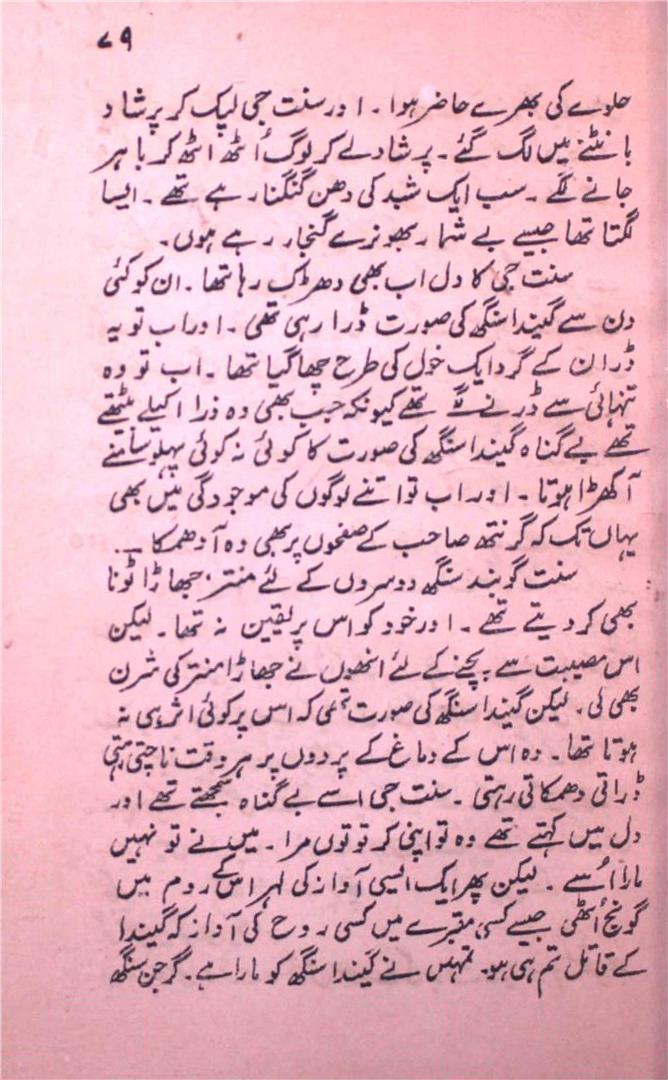 ۷۹
حلوے کی بھرے حاضر ہوا ۔ اور سنت جی لپک کر پرشاد
بانٹنے میں لگ گئے ۔ پرشاد لے کر لوگ اُٹھ اٹھ کر باہر
جانے لگے ۔ سب ایک شبد کی دھن گنگنا رہے تھے ۔ ایسا
لگتا تھا جیسے بے شمار بھونرے گنجار رہے ہوں۔
سنت جی کا دل اب بھی دھڑک رہا تھا ۔ ان کو کئی
دن سے گیندا سنگھ کی صورت ڈرا رہی تھی ۔ اور اب تو یہ
ڈر ان کے گرد ایک خول کی طرح چھا گیا تھا ۔ اب تو وہ
تنہائی سے ڈرنے لگے تھے کیونکہ جب بھی وہ ذرا اکیلے بیٹھتے
تھے بے گناہ گیندا سنگھ کی صورت کا کوئی نہ کوئی پہلو سامنے
آ کھڑا ہوتا ۔ اور اب تو اتنے لوگوں کی موجودگی میں بھی
یہاں تک کہ گرنتھ صاحب کے صفحوں پر بھی وہ آ دھمکا ۔
سنت گوبند سنگھ دوسروں کے لئے منتر جھاڑا ٹونا
بھی کر دیتے تھے ۔ اور خود کو اس پر یقین نہ تھا ۔ لیکن
اس مصیبت سے بچنے کے لئے انھوں نے جھاڑا منتر کی شرن
بھی لی ۔ لیکن گیندا سنگھ کی صورت تھی کہ اس پر کوئی اثر ہی نہ
ہوتا تھا ۔ وہ اس کے دماغ کے پردوں پر ہر وقت ناچتی رہتی
ڈراتی دھمکاتی رہتی ۔ سنت جی اسے بے گناہ سمجھتے تھے اور
دل میں کہتے تھے وہ تو اپنی کرتوتوں مرا ۔ میں نے تو نہیں
مارا اُسے ۔ لیکن پھر ایک ایسی آواز کی لہر اس کے روم میں
گونج اُٹھی جیسے کسی مقبرے میں کسی روح کی آواز کہ گیندا
کے قاتل تم ہی ہو ۔ تمہیں نے گیندا سنگھ کو مارا ہے ۔ گرجن سنگھ